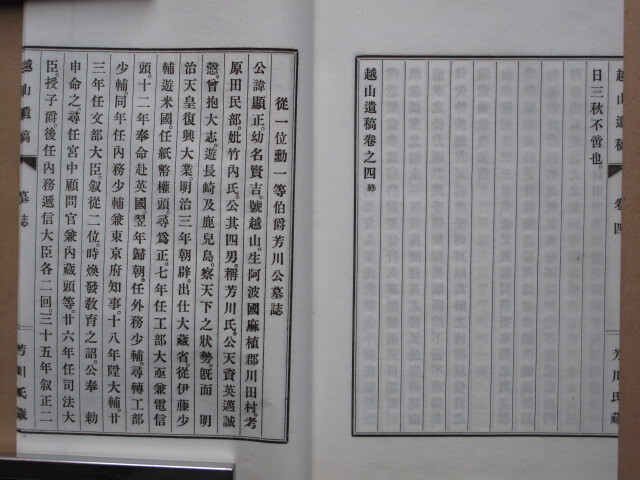 越山遺稿
卷四
芳川氏藏
日三秋不啻也。
越山遺稿卷之四 終
從一位勳一等伯爵芳川公墓誌
公諱顯正。幼名賢吉。號越山。生阿波國麻植郡川田村。考
原田民部。妣竹內氏。公其四男。稱芳川氏。公天資英邁誠
慤。曾抱大志。遊長崎及鹿兒島。察天下之狀勢。旣而 明
治天皇復興大業。明治三年朝辟。出仕大藏省。從伊藤少
輔遊米國。任紙幣權頭。尋爲正。七年任工部大丞兼電信
頭。十二年奉命赴英國。翌年歸朝。任外務少輔。尋轉工部
少輔。同年任內務少輔兼東京府知事。十八年陞大輔。廿
三年任文部大臣。叙從二位。時煥發敎育之詔。公奉 勅
申命之。尋任宮中顧問官兼內藏頭等。廿六年任司法大
臣。授子爵。後任內務遞信大臣各二回。三十五年叙正二
越山遺稿
墓誌
芳川氏藏